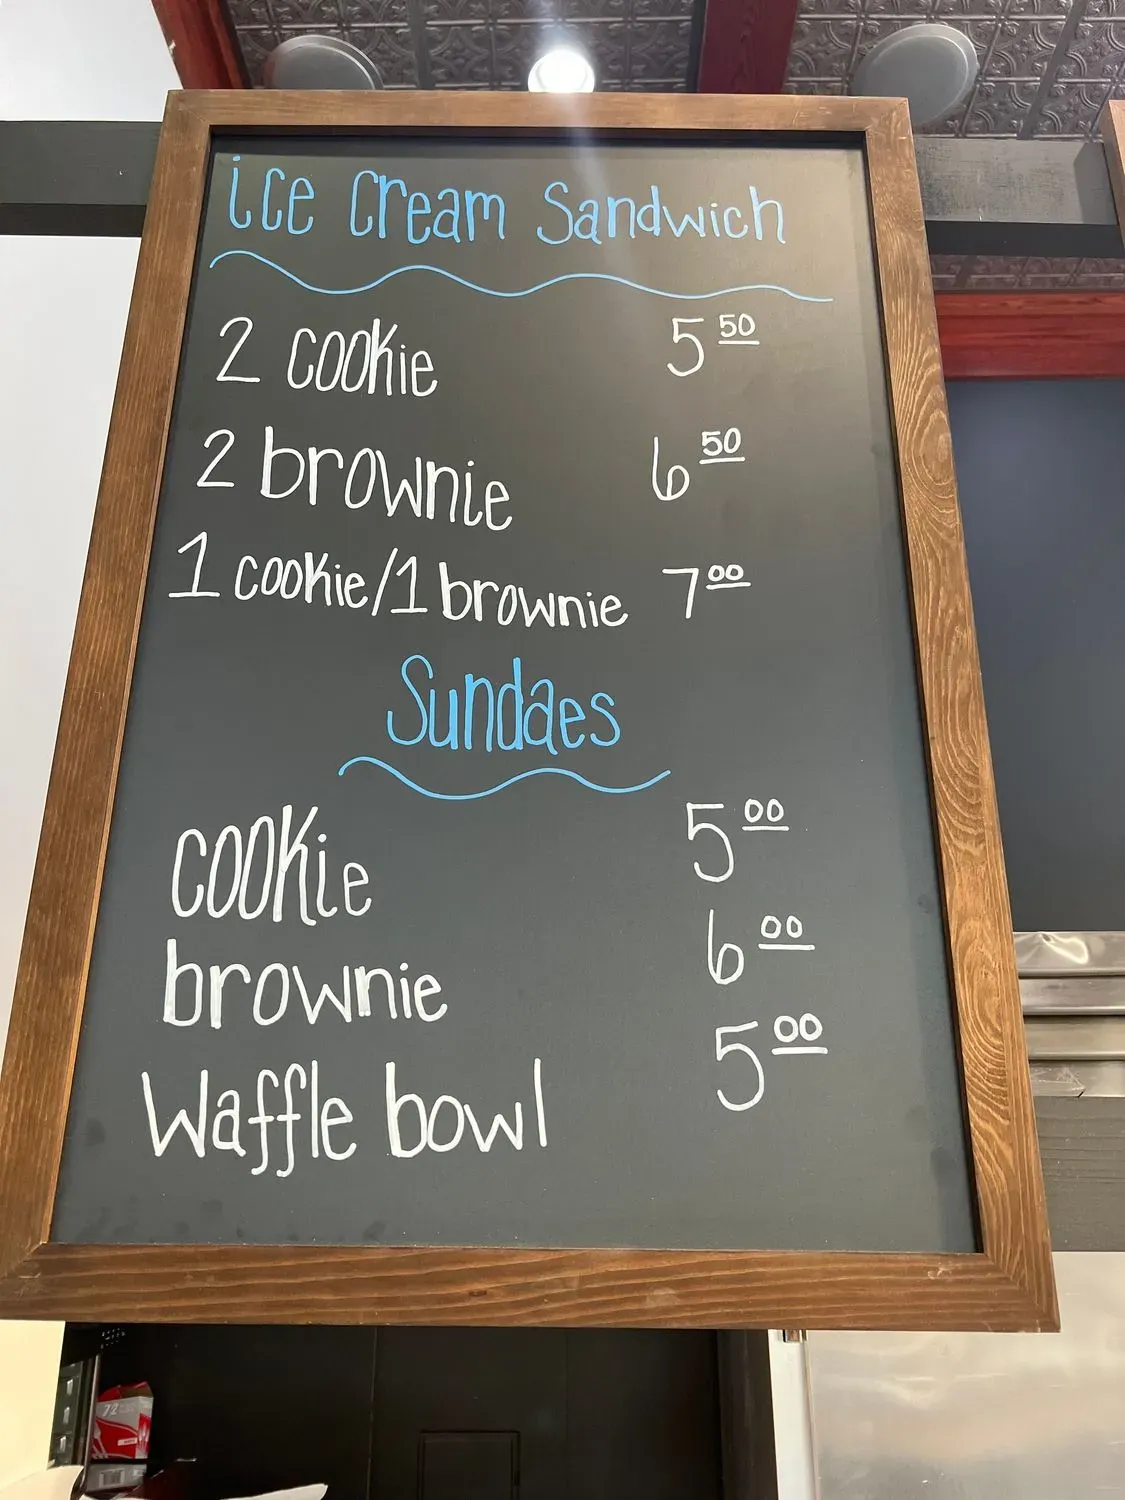 ice cream Sandwich
2 cookie 5 50
2 brownie 6 50
1 cookie/1 brownie 7 00
Sundaes
cookie 5 00
brownie 6 00
Waffle bowl 5 00
72